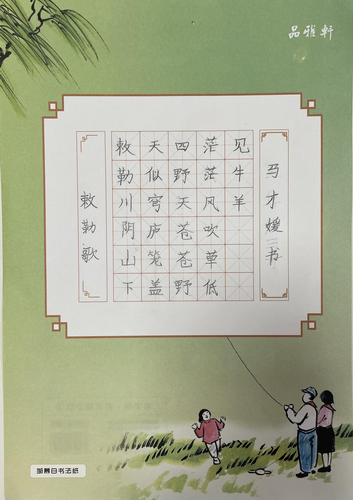 品雅軒
敕勒歌
敕勒川阴山下
天似穹庐笼盖
四野天苍苍野
茫茫风吹草低
见牛羊
马才媛书